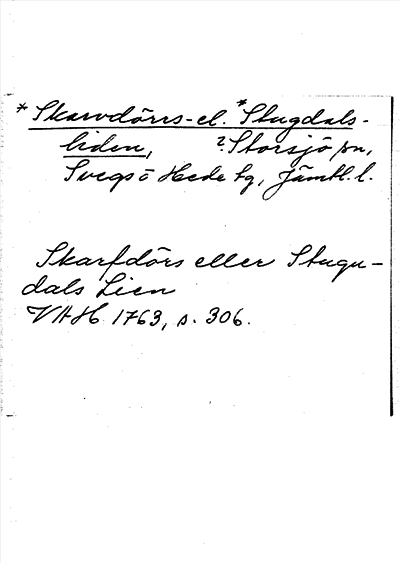 *Skarvdörrs- el. *Stugdals-
liden, ?Storsjö sn,
Svegs o Hede tg, Jämtl. l.
Skarfdörs eller Stugu-
dals Lien
VAH 1763, s. 306.